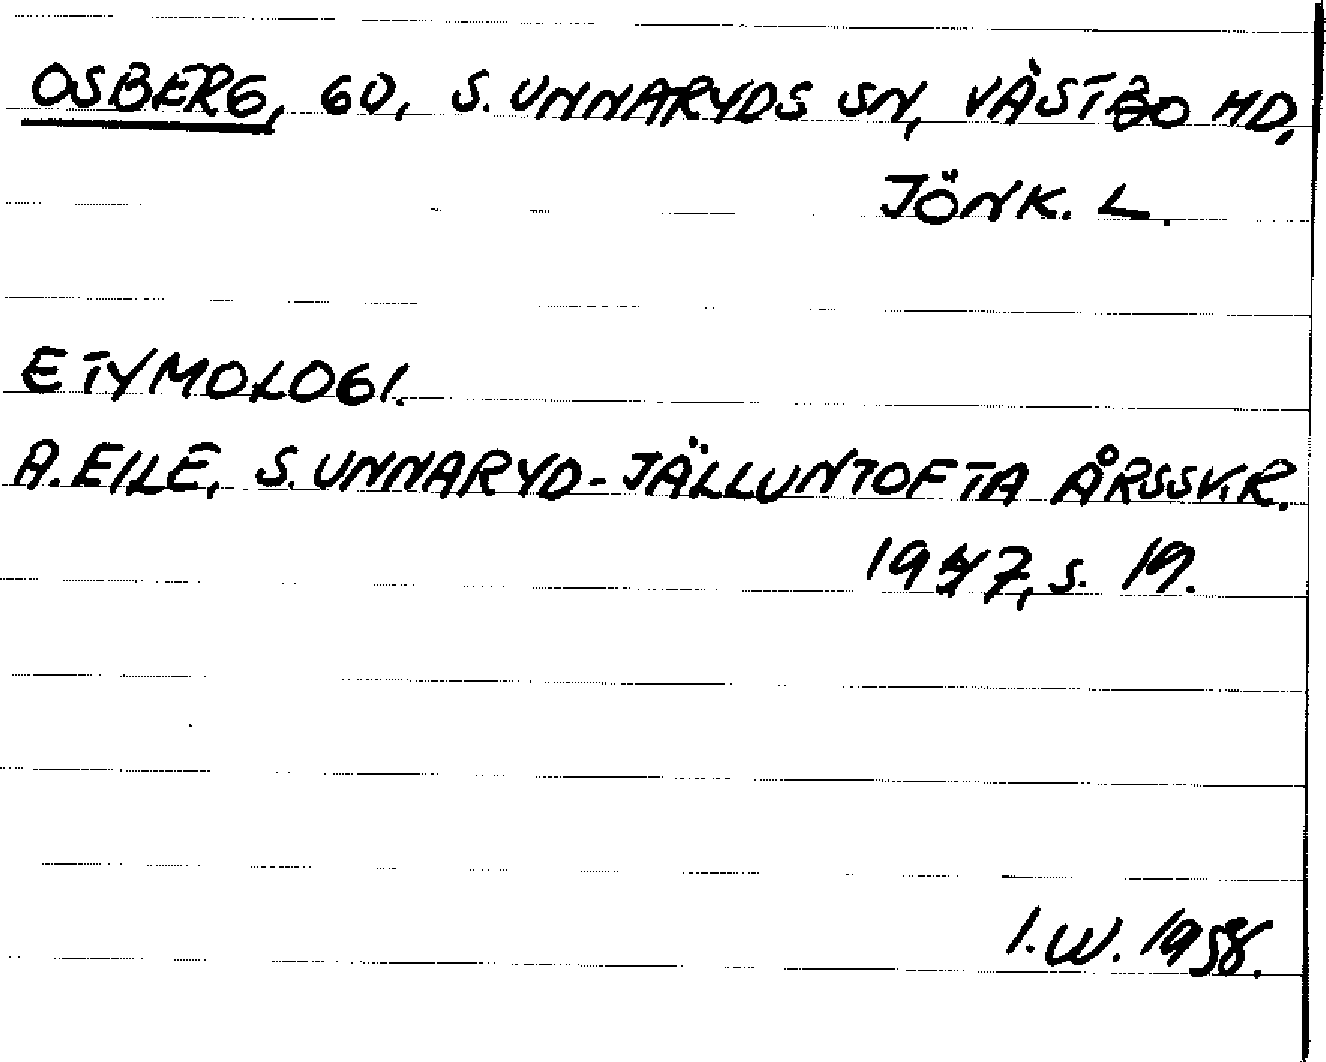 OSBERG, GD, S. UNNARYDS SN, VÄSTBO HD,
JÖNK. L.
ETYMOLOGI.
A. EILE, S. UNNARYD-JÄLLUNTOFTA ÅRSSKR.
1947, s. 19.
I.W. 1958.